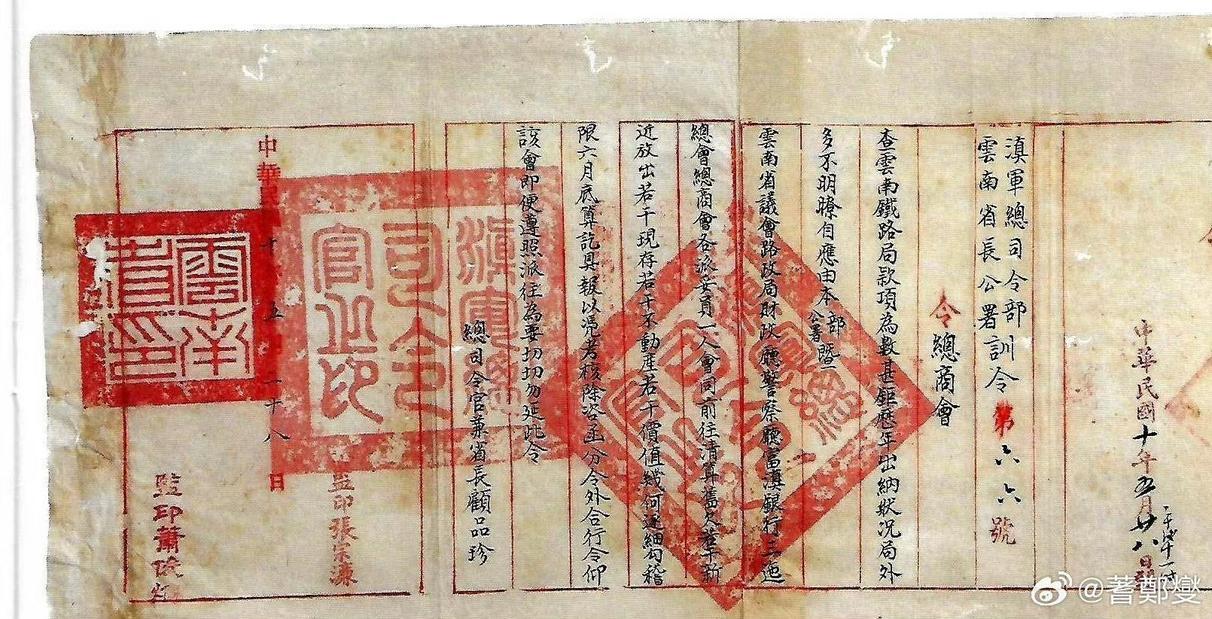 中華民國十年五月廿八日
滇軍總司令部
雲南省長公署訓令 第六六號
令總商會
查雲南鐵路局款項為數甚鉅歷年出納狀況局外
多不明瞭自應由本部公署暨
雲南省議會路政局財政廳警察廳富滇銀行三迤
總會總商會各派委員一人會同前往清算舊欠若干新
近放出若干現存若干不動產若干價值幾何逐細勾稽
限六月底算訖具報以憑考核除咨函分令外合行令仰
該會即便遵照派往為要切切勿延此令
總司令官兼省長顧品珍
滇軍總司令官之印
監印張宗濂
中華十五二十八日
雲南省長印
監印蕭
@蓍鄭燮